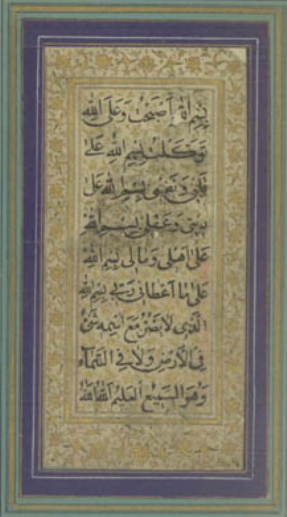 بِسْمِ اللّٰهِ اَصْبَحْتُ وَعَلَى اللّٰهِ
تَوَكَّلْتُ بِسْمِ اللّٰهِ عَلٰى
قَلْبِى وَنَفْسِى بِسْمِ اللّٰهِ عَلٰى
دِينِى وَعَقْلِى بِسْمِ اللّٰهِ
عَلٰى اَهْلِى وَمَالِى بِسْمِ اللّٰهِ
عَلٰى مَا اَعْطَانِى رَبِّى بِسْمِ اللّٰهِ
الَّذِى لَا يَضُرُّ مَعَ اسْمِهِ شَىْءٌ
فِى الْاَرْضِ وَلَا فِى السَّمَاءِ
وَهُوَ السَّمِيعُ الْعَلِيمُ اَللّٰهُ اللّٰهُ